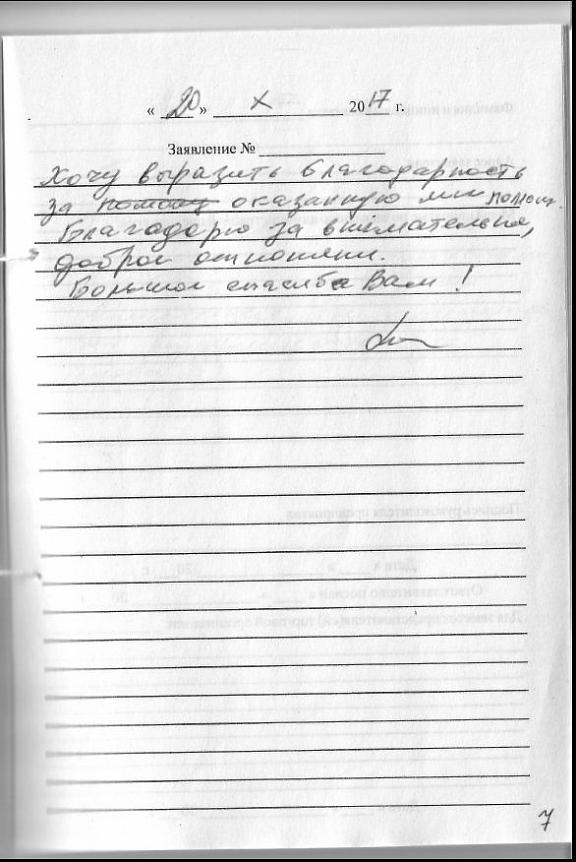 « 20 » X 2017 г.
Заявление №
Хочу выразить благодарность
за помощь оказанную мне помощь.
Благодарю за внимательное,
доброе отношение.
Большое спасибо Вам !
7